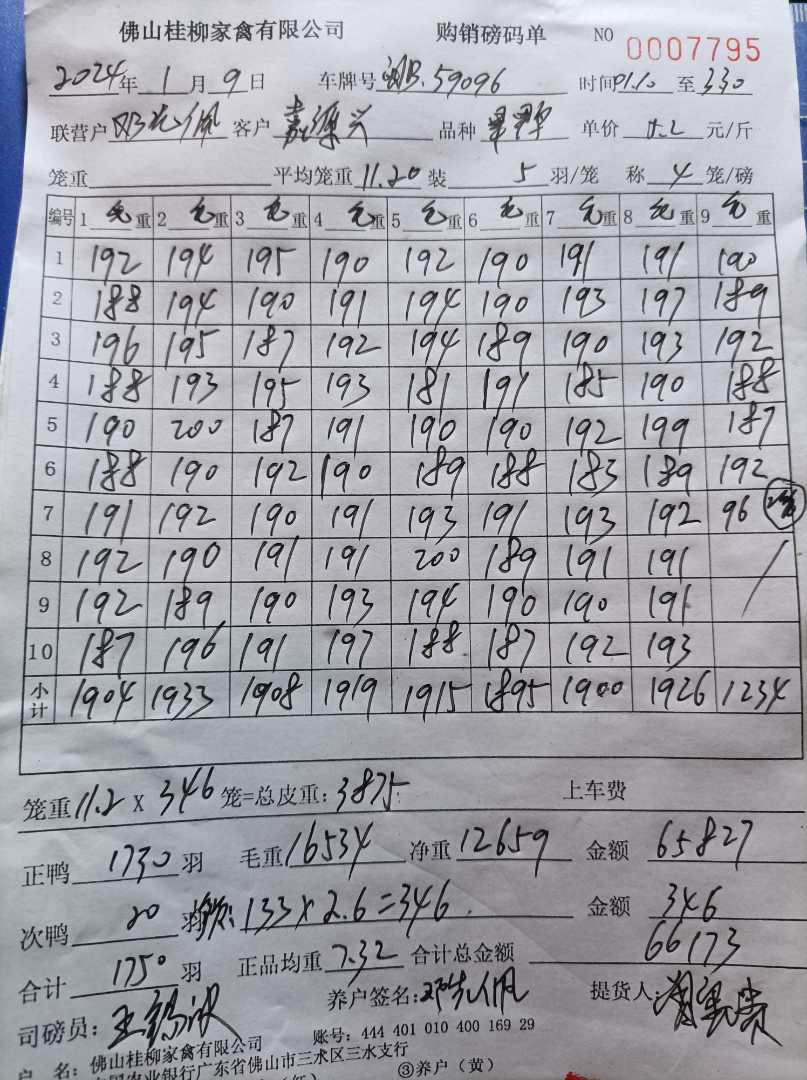 佛山桂柳家禽有限公司 购销磅码单 NO 0007795
2024年 1 月 9 日 车牌号 B.59096 时间01.10至330
联营户 客户 嘉源兴 品种 单价 5.2 元/斤
笼重 平均笼重 11.20 装 5 羽/笼 称 4 笼/磅
编号 1 毛重 2 毛重 3 毛重 4 毛重 5 毛重 6 毛重 7 毛重 8 毛重 9 毛重
1 192 194 195 190 192 190 191 191 190
2 188 194 190 191 194 190 193 197 189
3 196 195 187 192 194 189 190 193 192
4 188 193 195 193 181 191 185 190 188
5 190 200 187 191 190 190 192 199 187
6 188 190 192 190 189 188 183 189 192
7 191 192 190 191 193 191 193 192 96
8 192 190 191 191 200 189 191 191
9 192 189 190 193 194 190 190 191
10 187 196 191 197 188 187 192 193
小计 1904 1933 1908 1919 1915 1895 1900 1926 1234
笼重 11.2 x 346 笼=总皮重: 3875 上车费
正鸭 1730 羽 毛重 16534 净重 12659 金额 65827
次鸭 20 羽 133 x 2.6 = 346 金额 346
合计 1750 羽 正品均重 7.32 合计总金额 66173
司磅员: 养户签名: 提货人:
户 名: 佛山桂柳家禽有限公司 账号: 444 401 010 400 169 29
农业银行广东省佛山市三水区三水支行
③养户(黄)